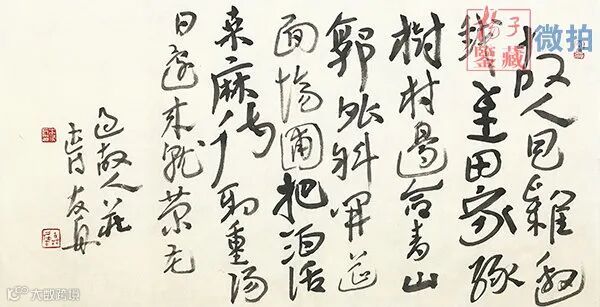 故人具雞黍
至田家綠
樹村邊合青山
郭外斜開筵
面場圃把酒話
桑麻待到重陽
日還來就菊花
過故人莊
子
鉴藏
微拍
大欧跨境